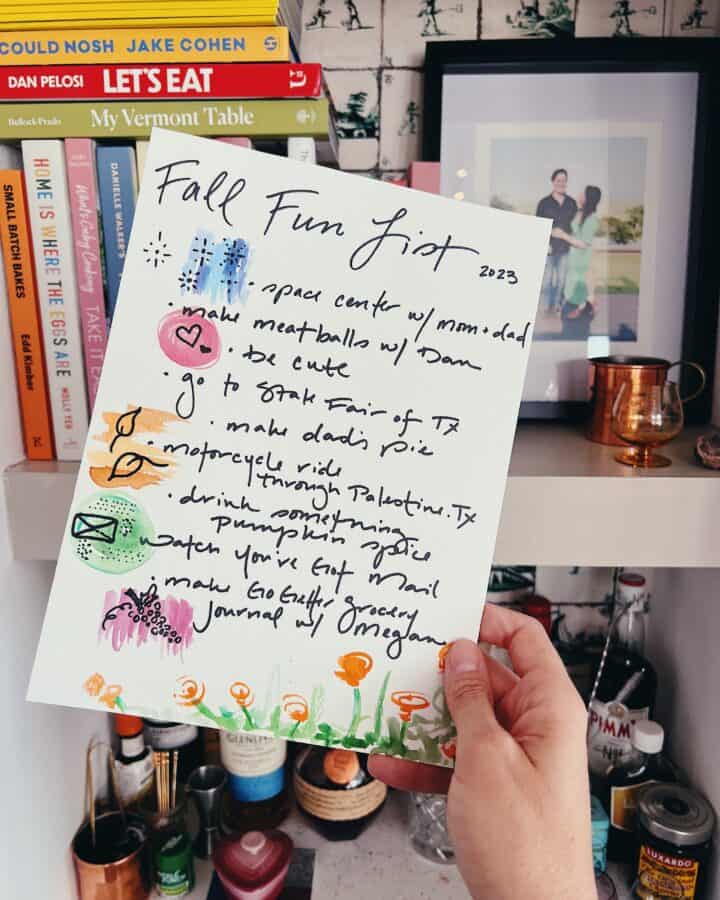 COULD NOSH JAKE COHEN
DAN PELOSI LET'S EAT
Bullock-Prado My Vermont Table
SMALL BATCH BAKES Edd Kimber
HOME IS WHERE THE EGGS ARE MOLLY YEH
What's Gaby Cooking TAKE IT
DANIELLE WALKER'S
Fall Fun List
2023
· space center w/ mom + dad
· make meatballs w/ Dan
· be cute
· go to State Fair of Tx
· make dad's pie
· motorcycle ride
through Palestine, Tx
· drink something
pumpkin spice
· watch You've Got Mail
· make GoGetter grocery
journal w/ Megan
PIMM'S
No 1
LUXARDO